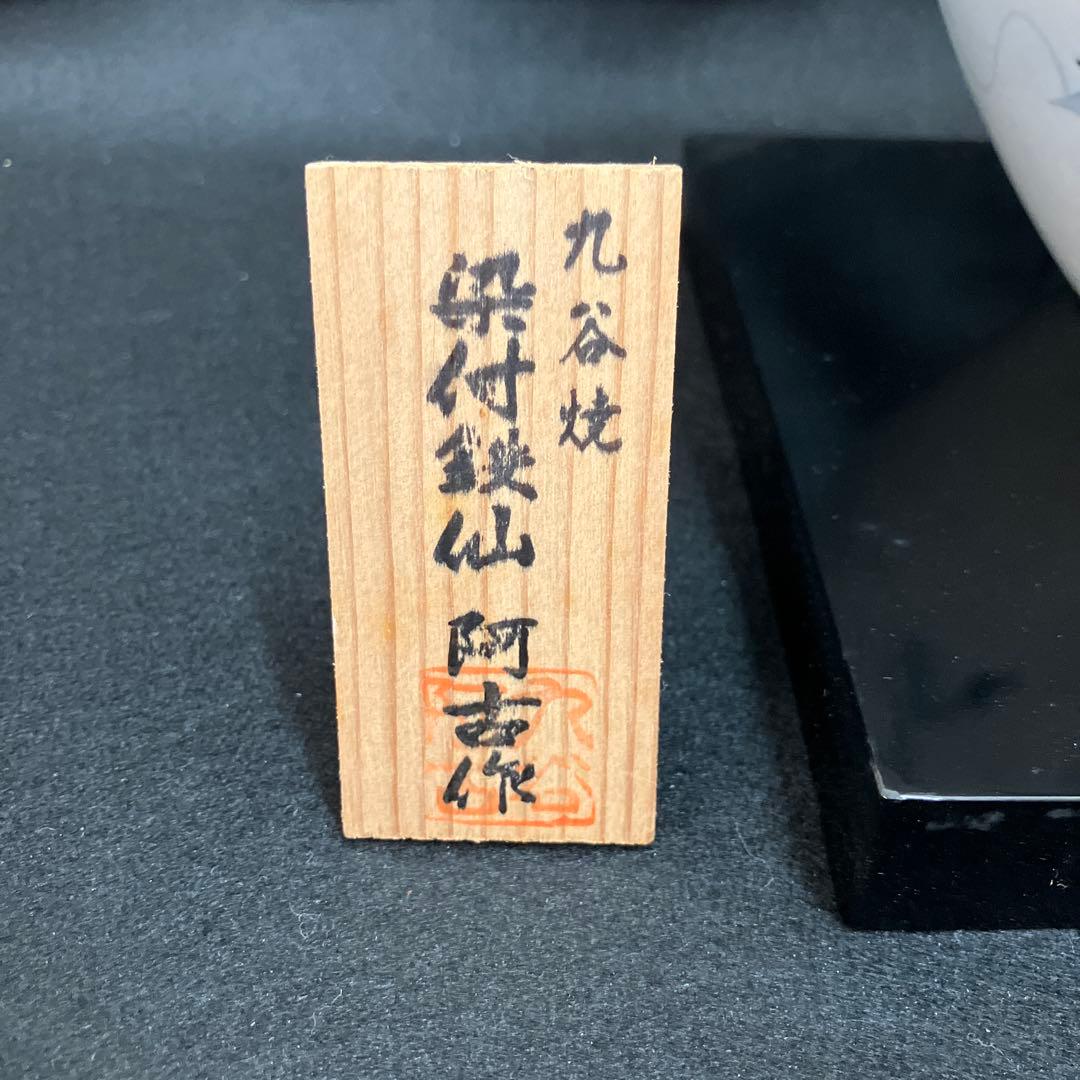 九谷焼
染付鉄仙 阿古作